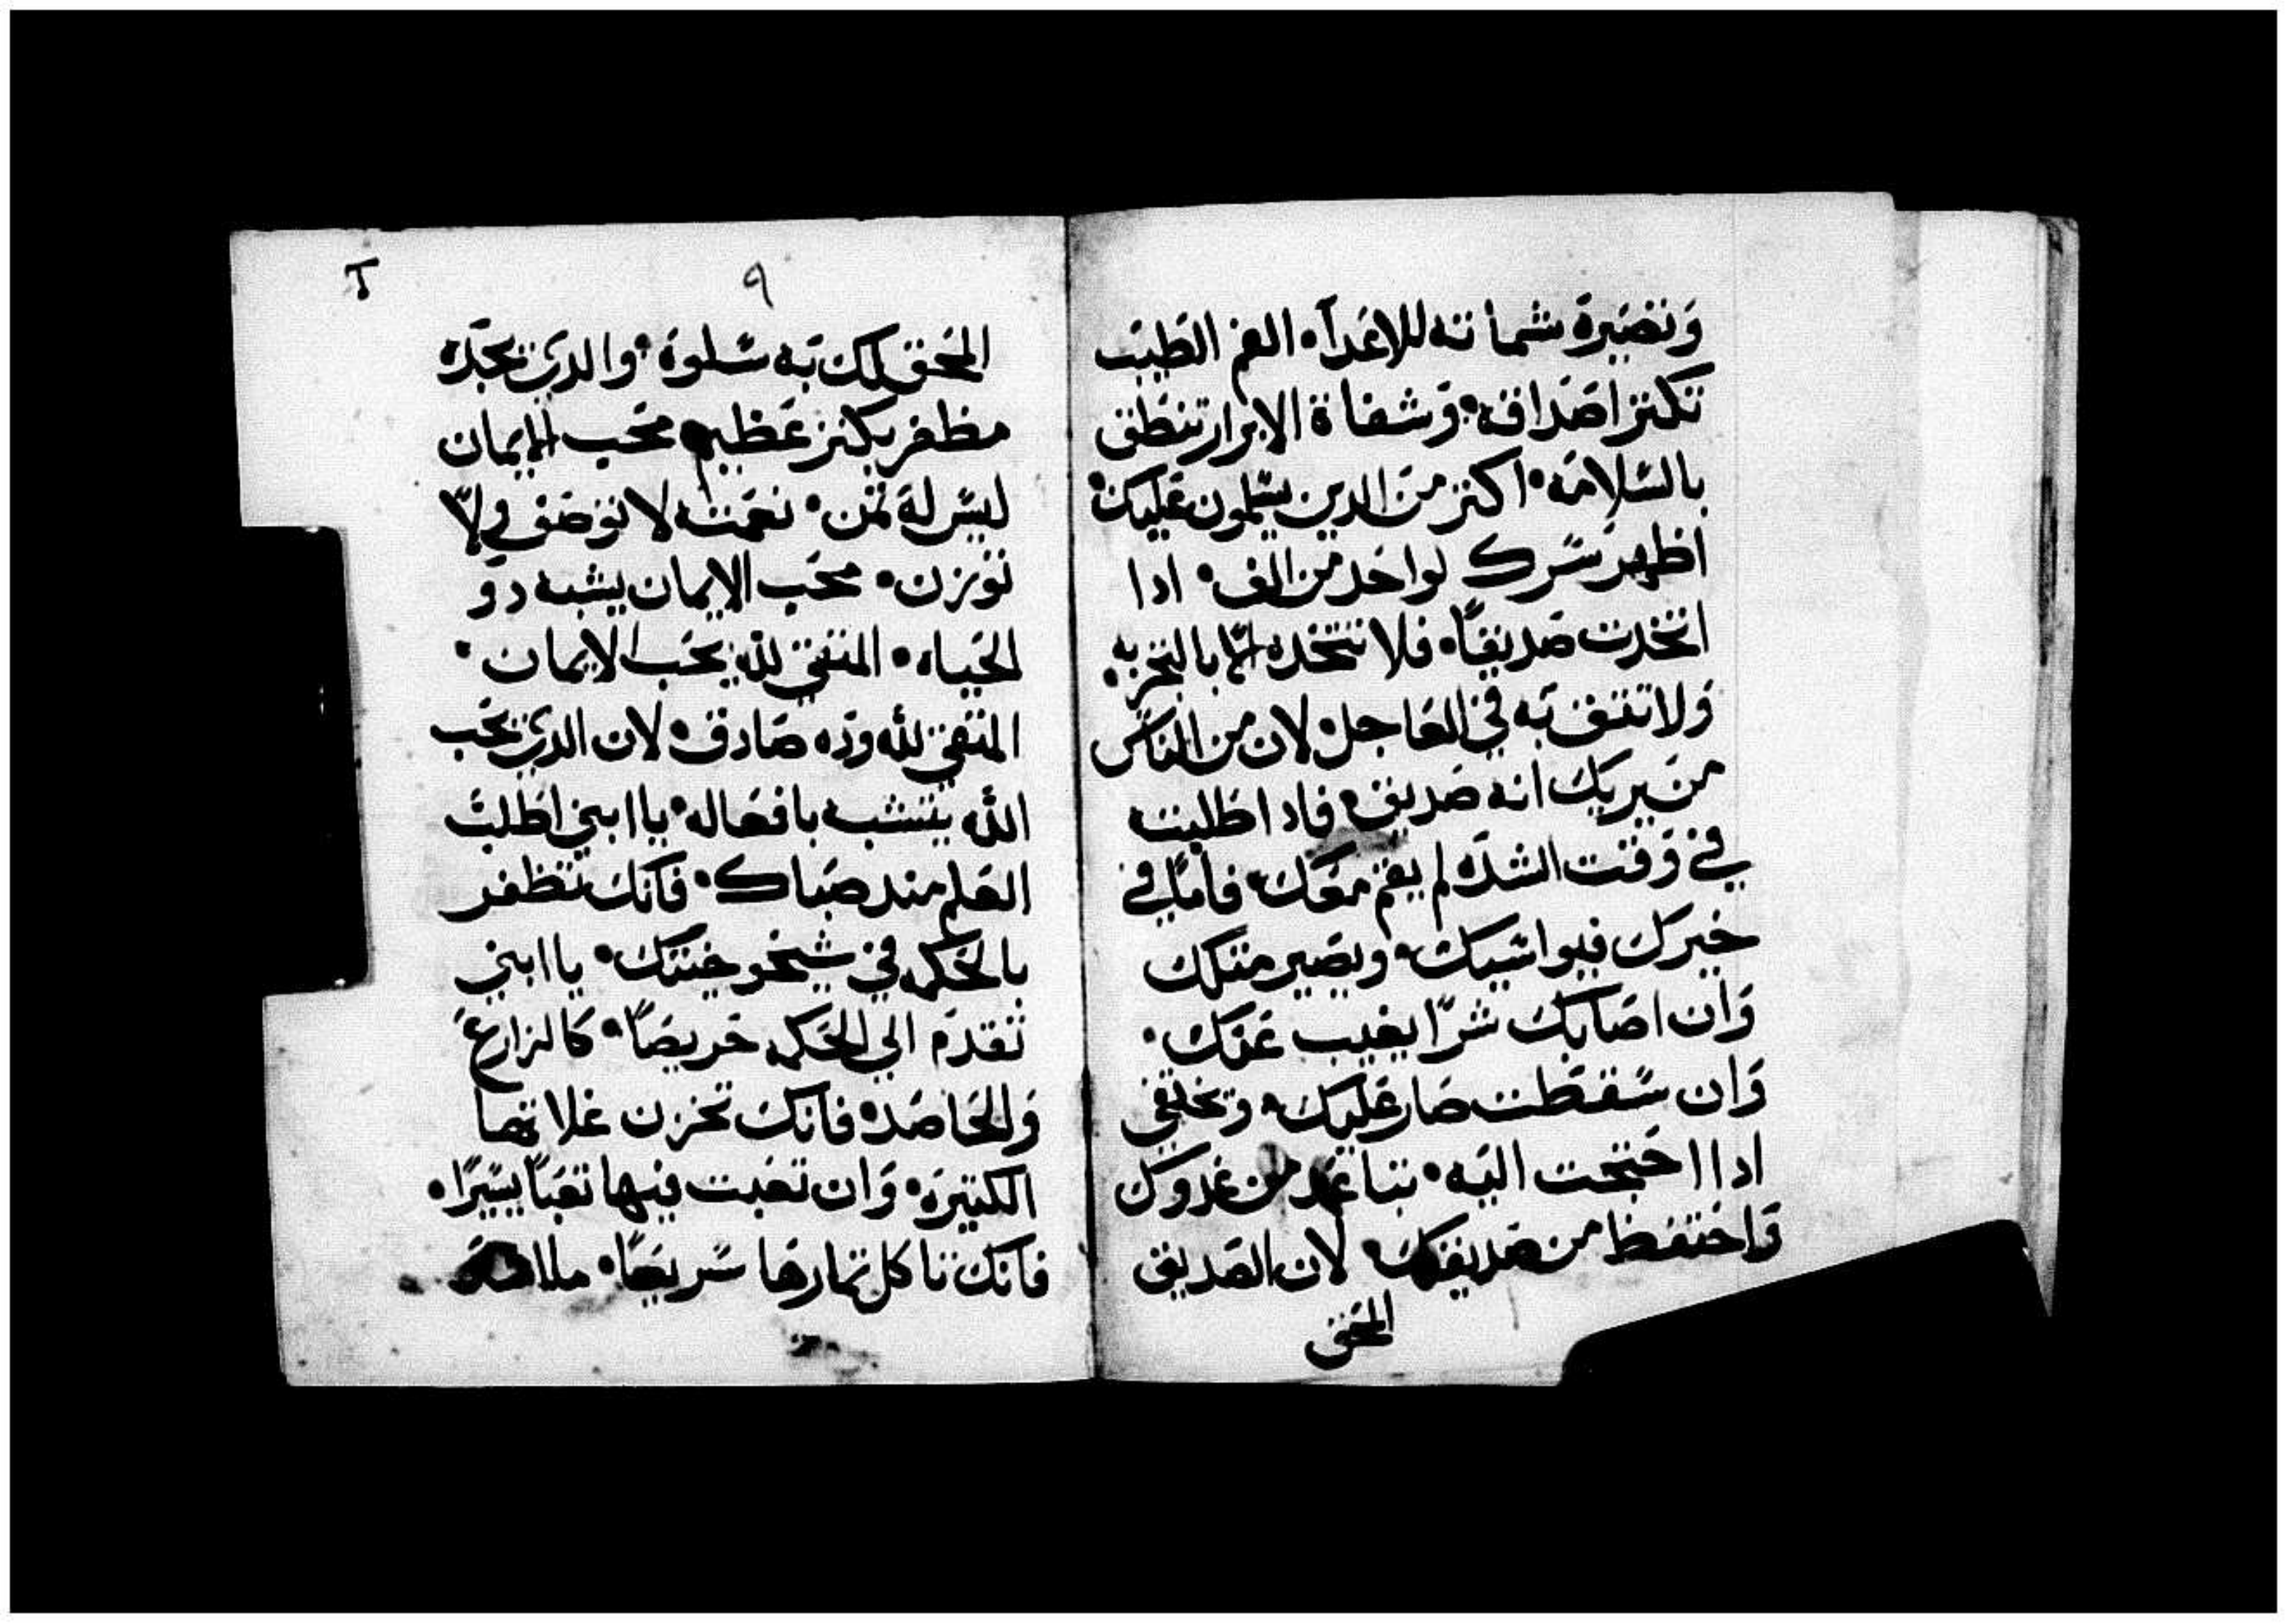 وتصيره شماته للاعدآء الفم الطيب
تكثر اصداقه وشفاة الابرار تنطق
بالسلامه اكثر من الدين يسلمون عليك
اظهر سرك لواحد من الف ادا
اتخدت صديقاً فلا تتخده الّا بالتجربه
ولا تثق به في العاجل لان من الناس
من يريك انه صديق فادا طلبته
في وقت الشده لم يقم معك فامّا في
خيرك فيواسيك ويصير مثلك
وان اصابك شرّاً يغيب عنك
وان سقطت صار عليك ويختفي
ادا احتجت اليه تباعد من عدوك
واحتفظ من صديقك لان الصديق
المحق
٩
المحق لك به سلوه والدي يجده
مظفر بكنز عظيم محب الايمان
ليس له ثمن نعمته لا توصف ولا
توزن محب الايمان يشبه دو
الحياه المتقي لله يحب الايمان
المتقي لله وده صادق لان الدي يحب
الله يتشبه بافعاله ياابني اطلب
العلم مند صباك فانك تظفر
بالحكمه في شيخوختك ياابني
تقدم الي الحكمه حريصاً كالزارع
والحاصد فانك تخزن غلاتها
الكتيره وان تعبت فيها تعباً يسيراً
فانك تاكل تمارها سريعاً